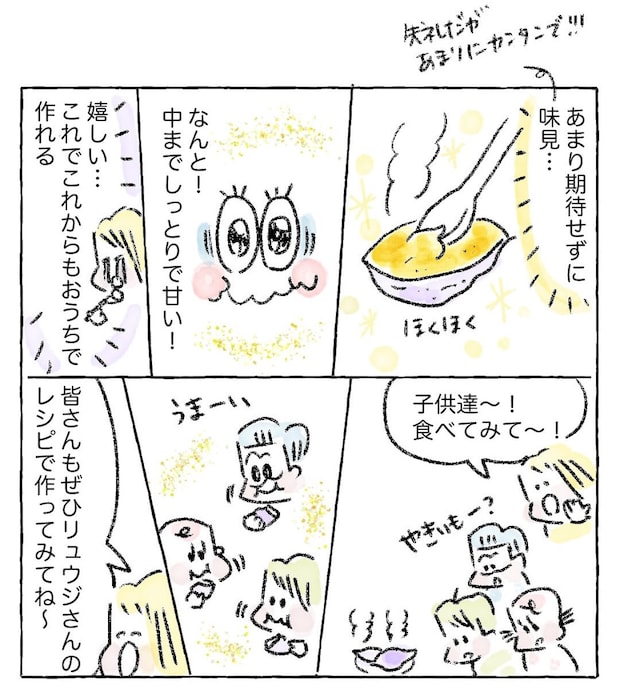 失礼だが
あまりにカンタンで!!!
あまり期待せずに
味見…
ほくほく
なんと!
中までしっとりで甘い!
嬉しい…
これでこれからもおうちで
作れる
子供達〜!
食べてみて〜!
やきいもー?
うまーい
皆さんもぜひリュウジさんの
レシピで作ってみてね〜